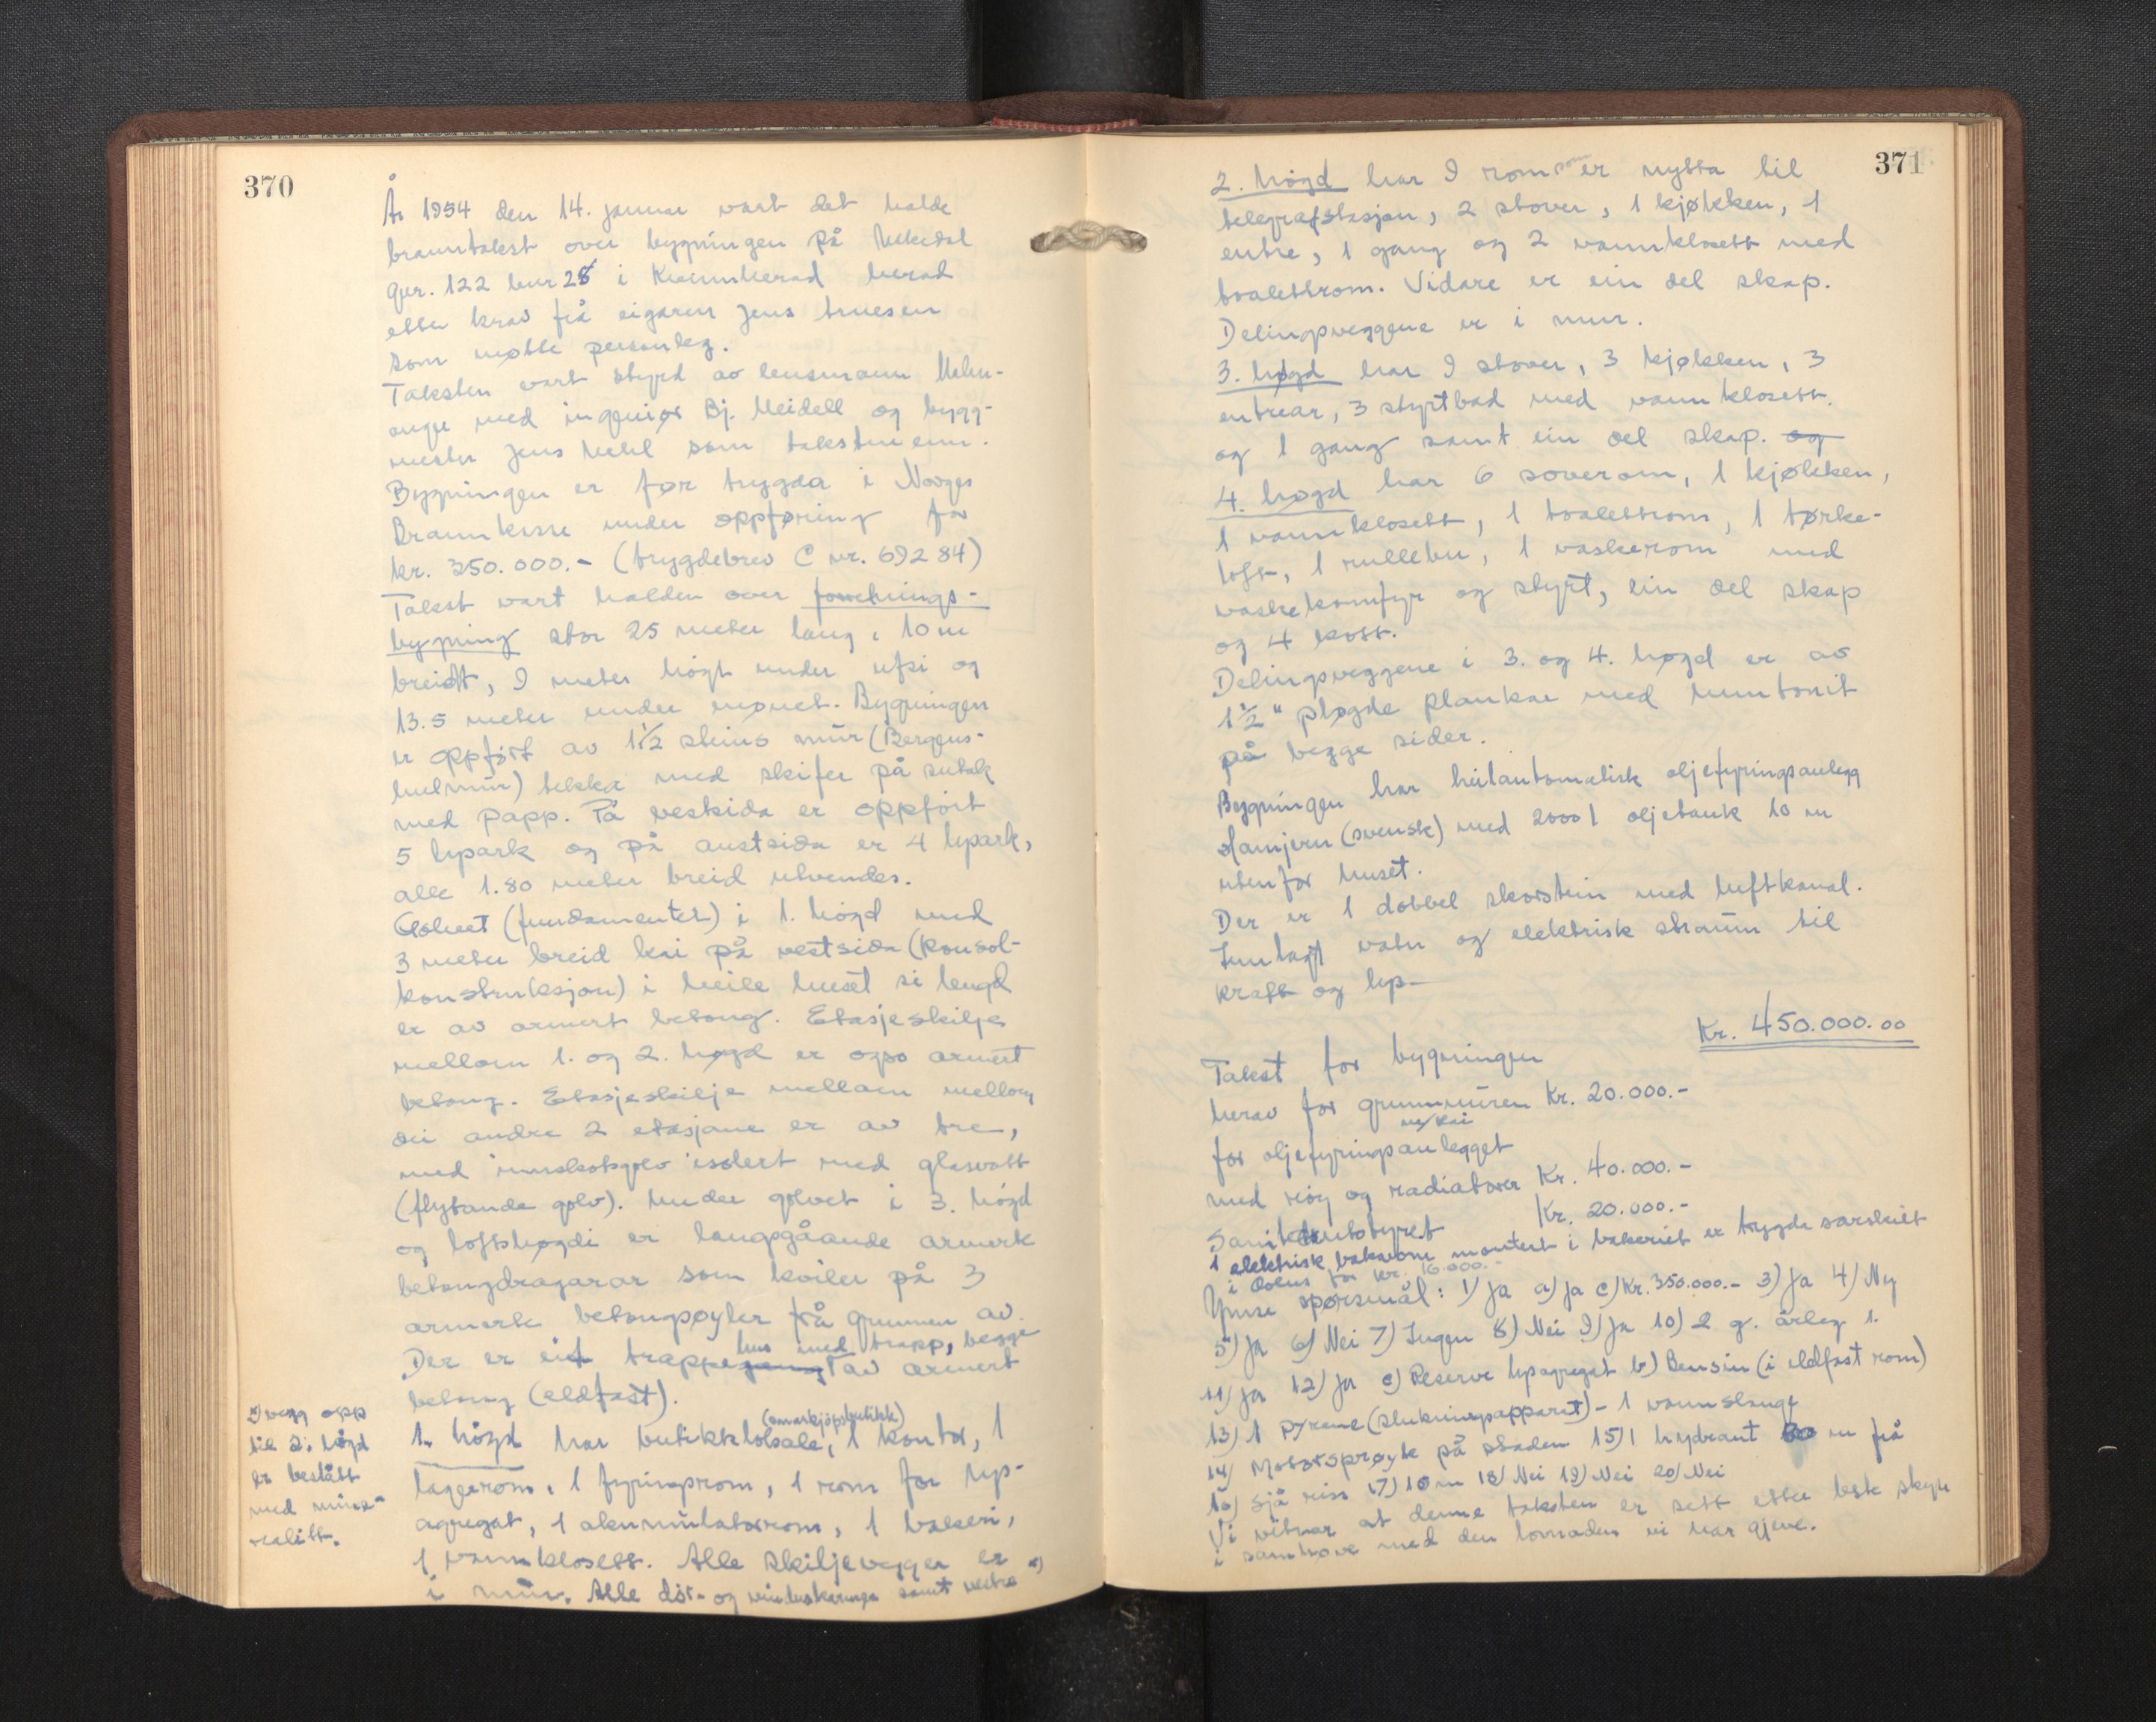 370
År 1954 den 14. januar vart det halde
branntakst over bygningen på
gnr. 122 bnr 28 i Kvinnherad herad
etter krav frå eigaren Jens
som møtte personleg.
Taksten vart styrd av lensmann
med ingeniør Bj. Meidell og bygg-
mester Jens Mehl som takstmenn.
Bygningen er før trygda i Norges
Brannkasse under oppføring for
kr. 350.000.- (trygdebrev C nr. 69284)
Takst vart halden over forretnings-
bygning stor 25 meter lang, 10 m
breidt, 9 meter høgt under ufsi og
13.5 meter under mønet. Bygningen
er oppført av 1½ steins mur (Bergens-
hulmur) tekka med skifer på sutak
med papp. På vestsida er oppført
5 lepark og på austsida er 4 lepark,
alle 1.80 meter breid utvendes.
Golvet (fundamentet) i 1. høgd med
3 meter breid kai på vestsida (konsol-
konstruksjon) i heile huset si lengd
er av armert betong. Etasjeskilje
mellom 1. og 2. høgd er ogso armert
betong. Etasjeskilje mellom mellom
dei andre 2 etasjane er av tre,
med innskotsgolv isolert med glasvatt
(flytande golv). Under golvet i 3. høgd
og loftshøgdi er langsgåande armerte
betongdragarar som kviler på 3
armerte betongsøyler frå grunnen av.
Der er eit trappegang hus med trapp, begge av armert
betong (eldfast).
1. høgd har butikklokale, (snarkjøpsbutikk) 1 kontor, 1
lagerrom, 1 fyringsrom, 1 rom for lys-
agregat, 1 akumulatorrom, 1 bakeri,
1 vannklosett. Alle skiljevegger er
i mur. Alle dør- og vinduskarmer samt vestre x)
x) vegg opp
til 2. høgd
er beslått
med mine-
ralitt.
371
2. høgd har 9 rom som er nytta til
telegrafstasjon, 2 stover, 1 kjøkken, 1
entre, 1 gang og 2 vannklosett med
toalettrom. Vidare er ein del skap.
Delingsveggene er i mur.
3. høgd har 9 stover, 3 kjøkken, 3
entrear, 3 styrtbad med vannklosett.
og 1 gang samt ein del skap. og
4. høgd har 6 soverom, 1 kjøkken,
1 vannklosett, 1 toalettrom, 1 tørke-
loft, 1 rullebu, 1 vaskerom med
vaskekomfyr og styrt, ein del skap
og 4 kott.
Delingsveggene i 3. og 4. høgd er av
1½" pløgde plankar med huntonit
på begge sider.
Bygningen har heilautomatisk oljefyringsanlegg
Hamjern (svensk) med 2000 l oljetank 10 m
utenfor huset.
Der er 1 dobbel skorstein med luftkanal.
Innlagt vatn og elektrisk straum til
kraft og lys
Takst for bygningen Kr. 450.000.00
herav for grunnmuren m/kai Kr. 20.000.-
for oljefyringsanlegget
med røy og radiatorer Kr. 40.000.-
Sanitærutstyret Kr. 20.000.-
1 elektrisk bakarovn montert i bakeriet er trygda særskilt
i for kr. 16.000.-
Ymse spørsmål: 1) Ja a) Ja c) Kr. 350.000.- 3) Ja 4) Ny
5) Ja 6) Nei 7) Ingen 8) Nei 9) Ja 10) 2 g. årleg 1.
11) Ja 12) Ja e) Reserve lysagregat b) Bensin (i eldfast rom)
13) 1 Pyrene (slukningsapparat) - 1 vannslange
14) Motorsprøyte på staden 15) 1 hydrant m frå
16) Sjå riss 17) 10 m 18) Nei 19) Nei 20) Nei
Vi vitnar at denne taksten er sett etter beste skyn
i samhøve med den lovnaden vi har gjeve.